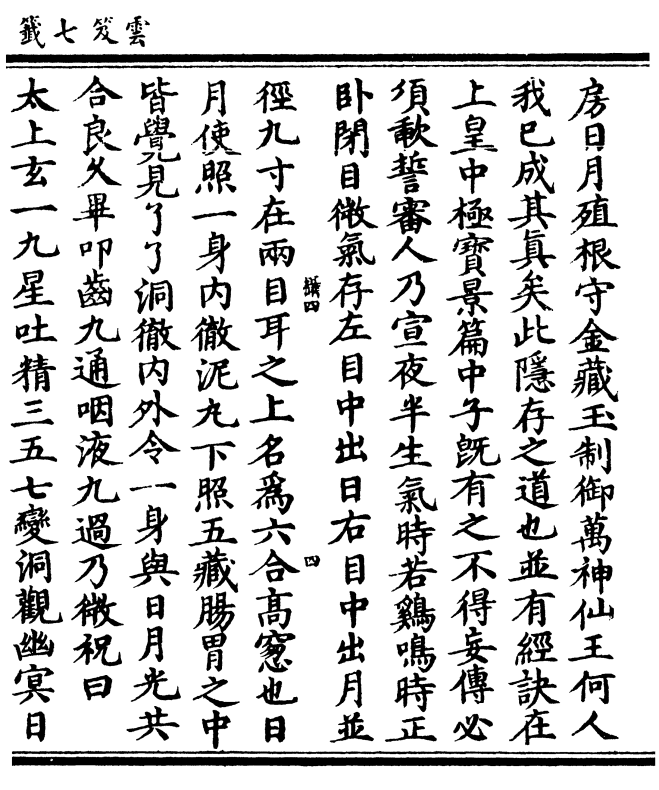 雲笈七籤
房日月殖根守金藏玉制御萬神仙王何人
我已成其眞矣此隱存之道也並有經訣在
上皇中極寶景篇中子旣有之不得妄傳必
須歃誓審人乃宣夜半生氣時若鷄鳴時正
臥閉目微氣存左目中出日右目中出月並
攝四
四
徑九寸在兩目耳之上名爲六合高窓也日
月使照一身內徹泥丸下照五藏腸胃之中
皆覺見了了洞徹內外令一身與日月光共
合良久畢叩齒九通咽液九過乃微祝曰
太上玄一九星吐精三五七變洞觀幽冥日